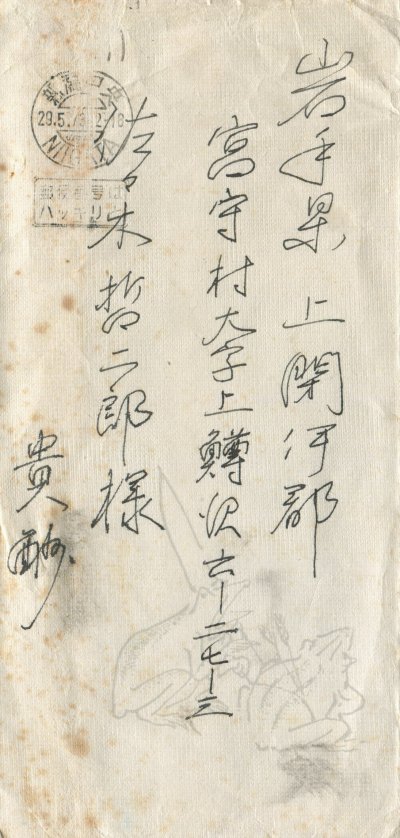 岩手県上閉伊郡
宮守村大字上鱒沢六ー二七ー三
佐々木哲二郎様
貴酬
新潟中央
NIIGATA
郵便番号は
ハッキリと